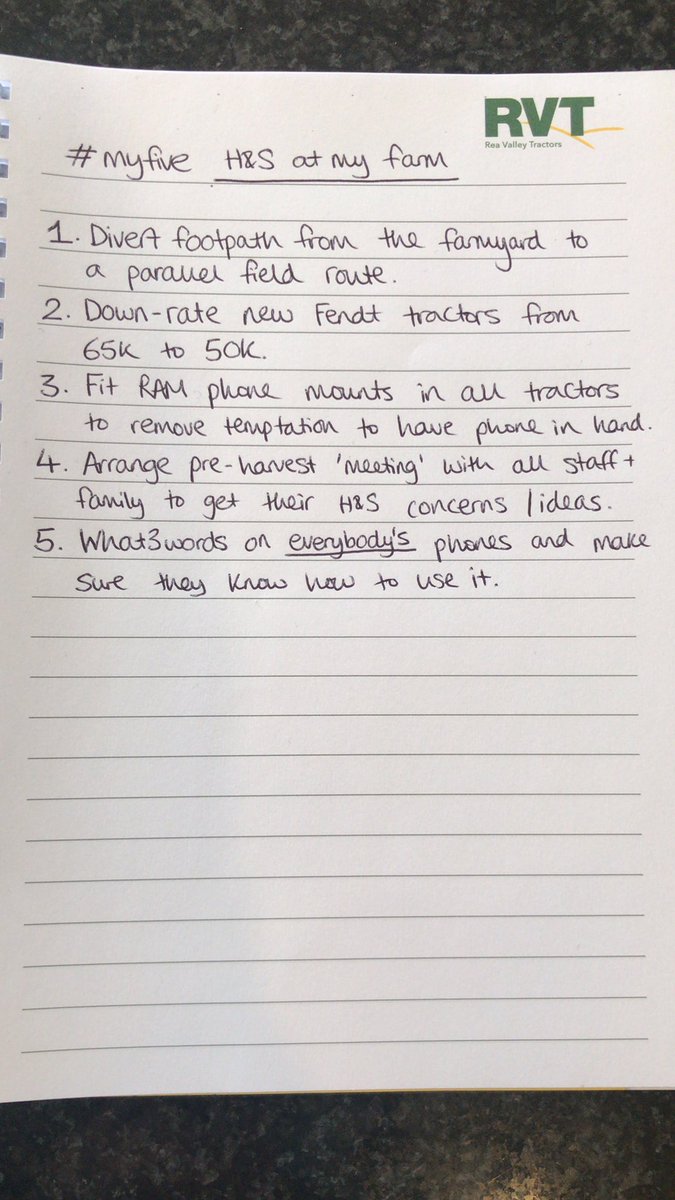 RVT
Rea Valley Tractors
#myfive H&S at my farm
1. Divert footpath from the farmyard to
a parallel field route.
2. Down-rate new Fendt tractors from
65K to 50K.
3. Fit RAM phone mounts in all tractors
to remove temptation to have phone in hand.
4. Arrange pre-harvest 'meeting' with all staff +
family to get their H&S concerns / ideas.
5. What3words on everybody's phones and make
sure they know how to use it.